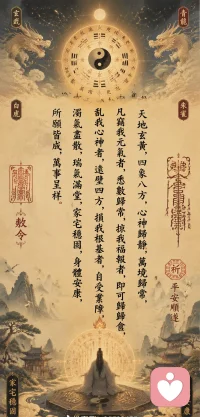 玄武
青龍
白虎
朱雀
天地玄黃，四象八方，心神歸靜，萬境歸常，
凡竊我元氣者，悉數歸常，掠我福報者，即可歸歸倉，
亂我心神者，遠壁四方，損我根基者，自受業障，
濁氣盡散，瑞氣滿堂，家宅穩固，身體安康，
所願皆成，萬事呈祥。
敕令
祈
平安順遂
家宅穩固
康